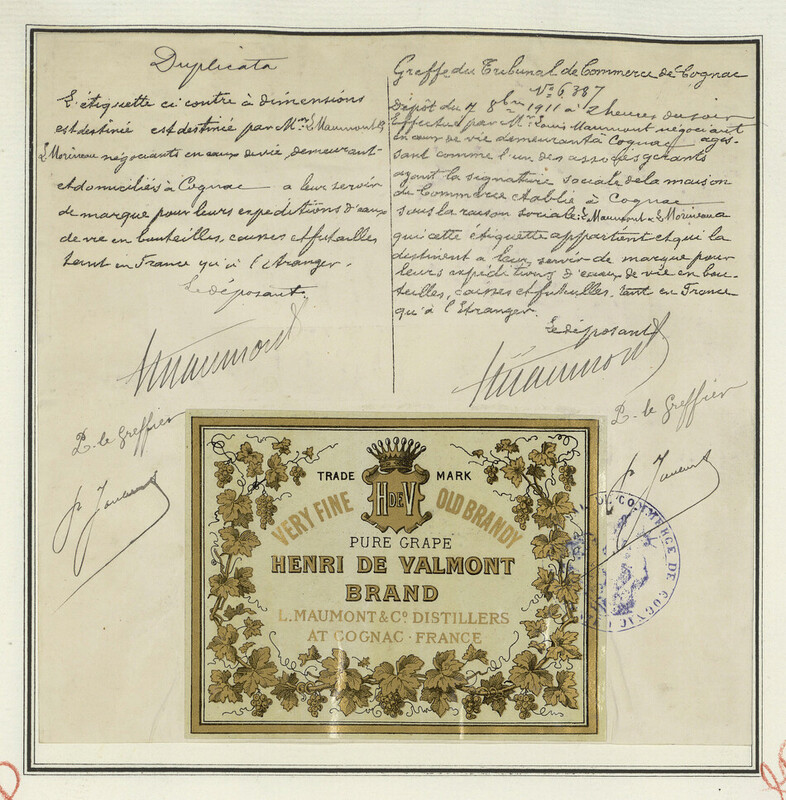 Duplicata
L'étiquette ci contre à dimensions
est destinée est destinée par Mrs L. Maumont &
L. Morineau négociants en eaux de vie, demeurant
et domiciliés à Cognac a leur servir
de marque pour leurs expéditions d'eaux
de vie en bouteilles, caisses et futailles
tant en France qu'à l'étranger.
Le déposant.
LMaumont
P. le Greffier
Greffe du Tribunal de Commerce de Cognac
No 6387
Dépôt du 4 8bre 1911 à 2 heures du soir
Effectué par Mr Louis Maumont négociant
en eaux de vie demeurant à Cognac agis-
sant comme l'un des associés gérants
ayant la signature sociale de la maison
de Commerce établie à Cognac
sous la raison sociale: L. Maumont & L. Morineau a
qui cette étiquette appartient et qui la
destinent a leur servir de marque pour
leurs expéditions d'eaux de vie en bou-
teilles, caisses et futailles, tant en France
qu'à l'Etranger.
Le déposant
LMaumont
P. le Greffier
TRADE MARK
H DE V
VERY FINE OLD BRANDY
PURE GRAPE
HENRI DE VALMONT
BRAND
L. MAUMONT & Co. DISTILLERS
AT COGNAC · FRANCE
DE COMMERCE DE COGNAC